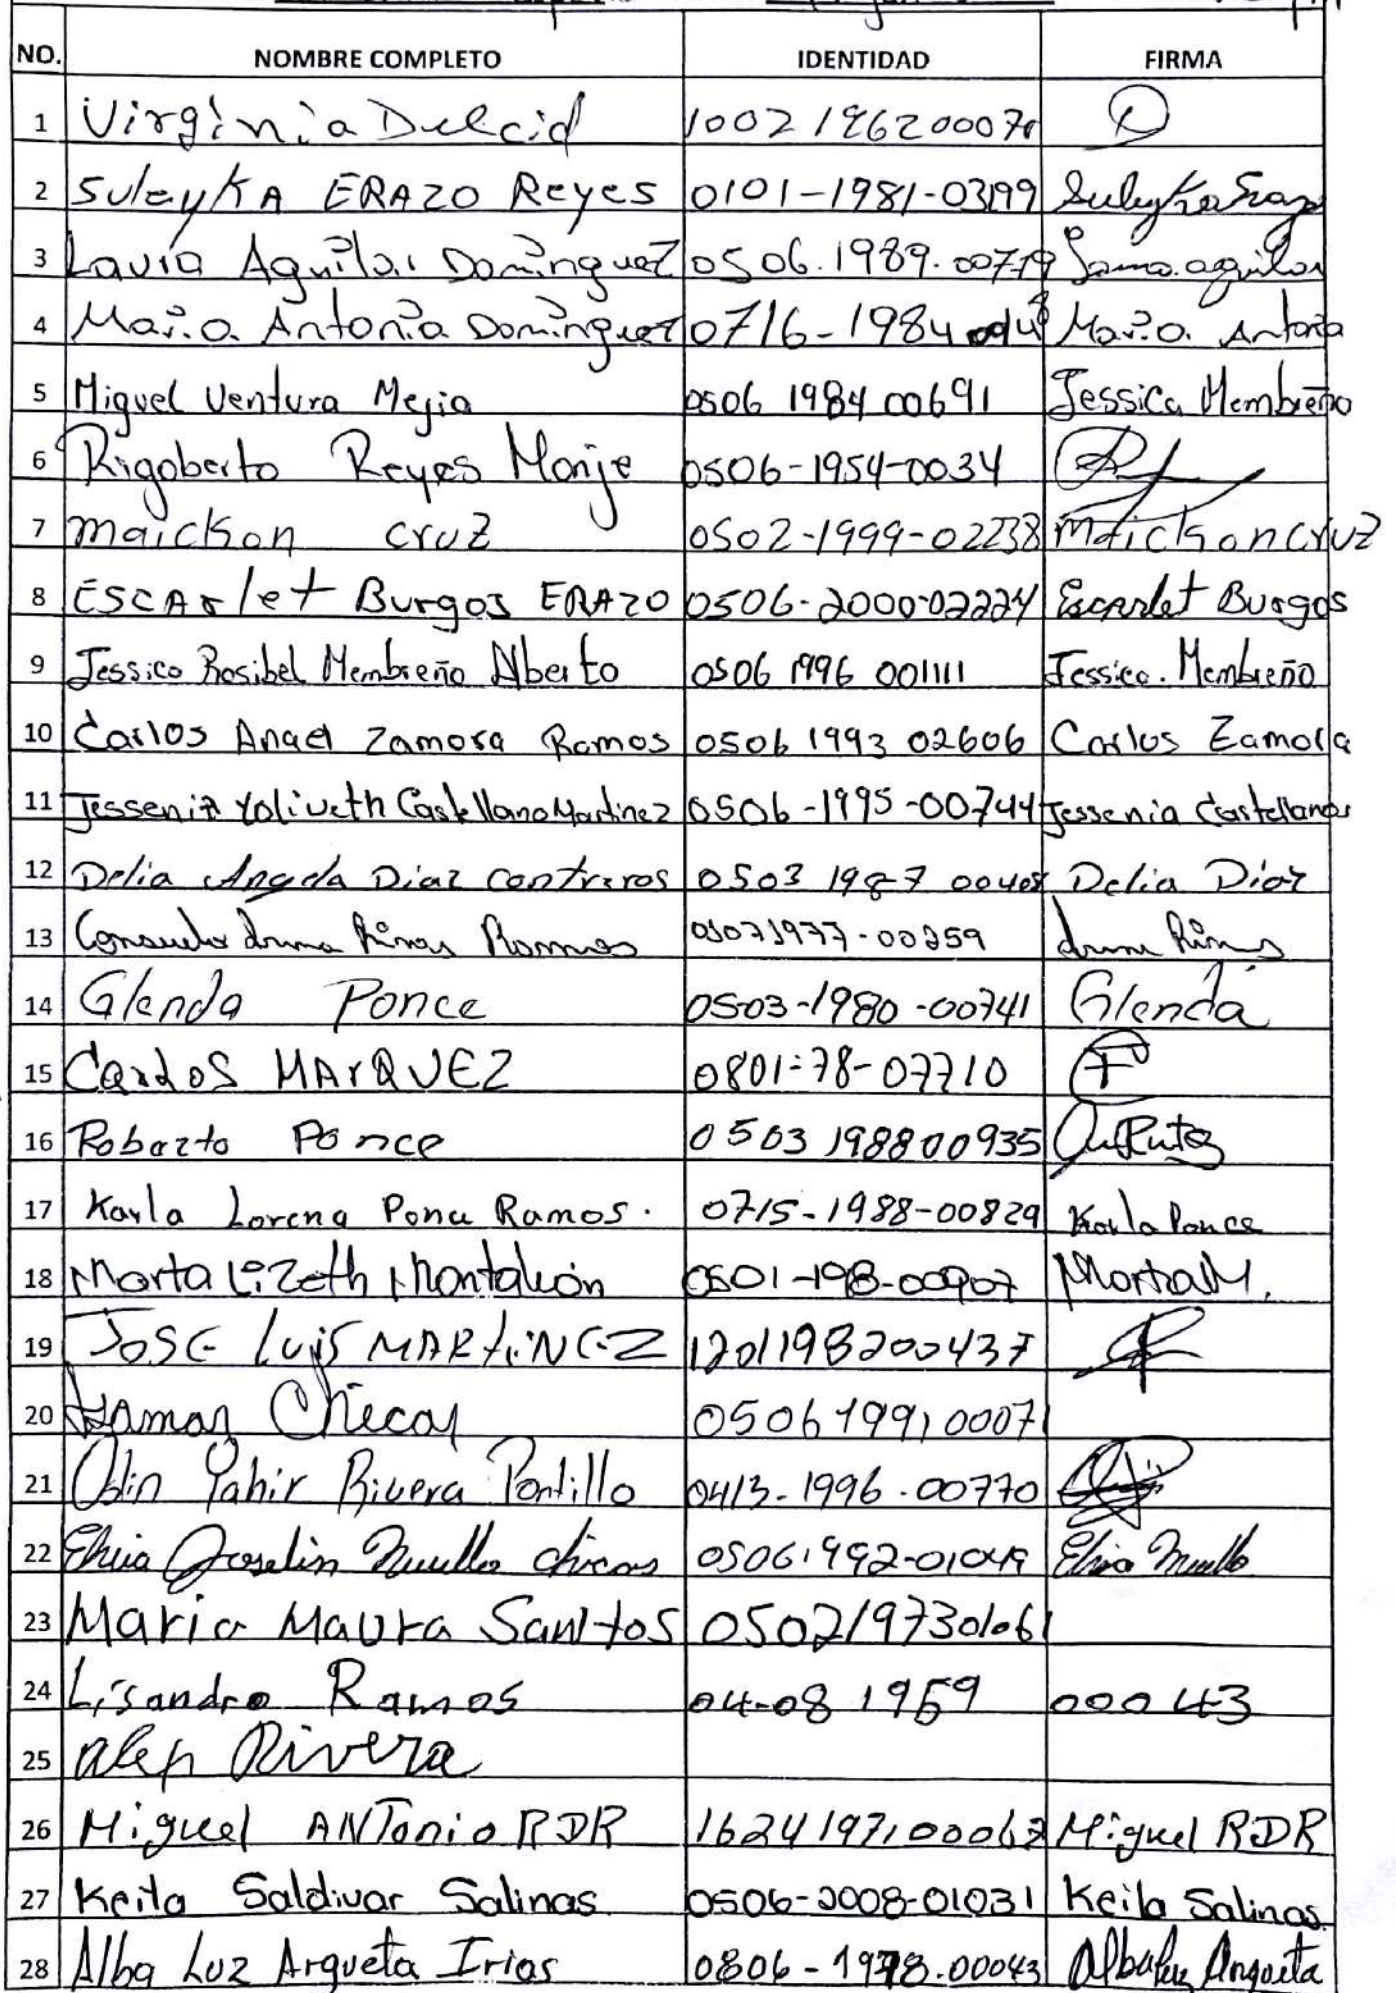 NO. NOMBRE COMPLETO IDENTIDAD FIRMA
1 Virginia Delcid 1002196200070
2 Suleyka ERAZO Reyes 0101-1981-03199 Suleyka Erazo
3 Laura Aguilar Dominguez 0506.1989.00779 Laura aguilar
4 Maria Antonia Dominguez 0716-1984 Maria Antonia
5 Miguel Ventura Mejia 0506 1984 00691 Jessica Membreño
6 Rigoberto Reyes Monje 0506-1954-0034
7 maickson cruz 0502-1999-02238 maickson cruz
8 ESCArlet Burgos ERAZO 0506-2000-02224 Escarlet Burgos
9 Jessica Rosibel Membreño Alberto 0506 1996 001111 Jessica. Membreño
10 Carlos Anael Zamora Ramos 0506 1993 02606 Carlos Zamora
11 Jessenia Yoliveth Castellano Martinez 0506-1995-00744 Jessenia Castellanos
12 Delia Angela Diaz contreros 0503 1987 00408 Delia Díaz
13 Consuelo Ramos -00259
14 Glenda Ponce 0503-1980-00741 Glenda
15 Carlos MArQUEZ 0801-78-07710
16 Roberto Ponce 0503 198800935
17 Karla Lorena Ponce Ramos. 0715-1988-00829 Karla Ponce
18 Marta Lizeth Montalván 0501-198-00907 Marta M.
19 JOSE LuiS MARtiNEZ 1201198200437
20 Checas 0506199100071
21 Yahir Rivera Portillo 0413-1996-00770
22 Joselin chicas 05061992-01049
23 Maria Maura Santos 0502197301061
24 Lisandro Ramos 04-08 1959 00043
25 Rivera
26 Miguel ANTonio RDR 1624197100062 Miguel RDR
27 Keila Saldivar Salinas 0506-2008-01031 Keila Salinas
28 Alba Luz Argueta Irias 0806-1978.00043 Alba Luz Argueta